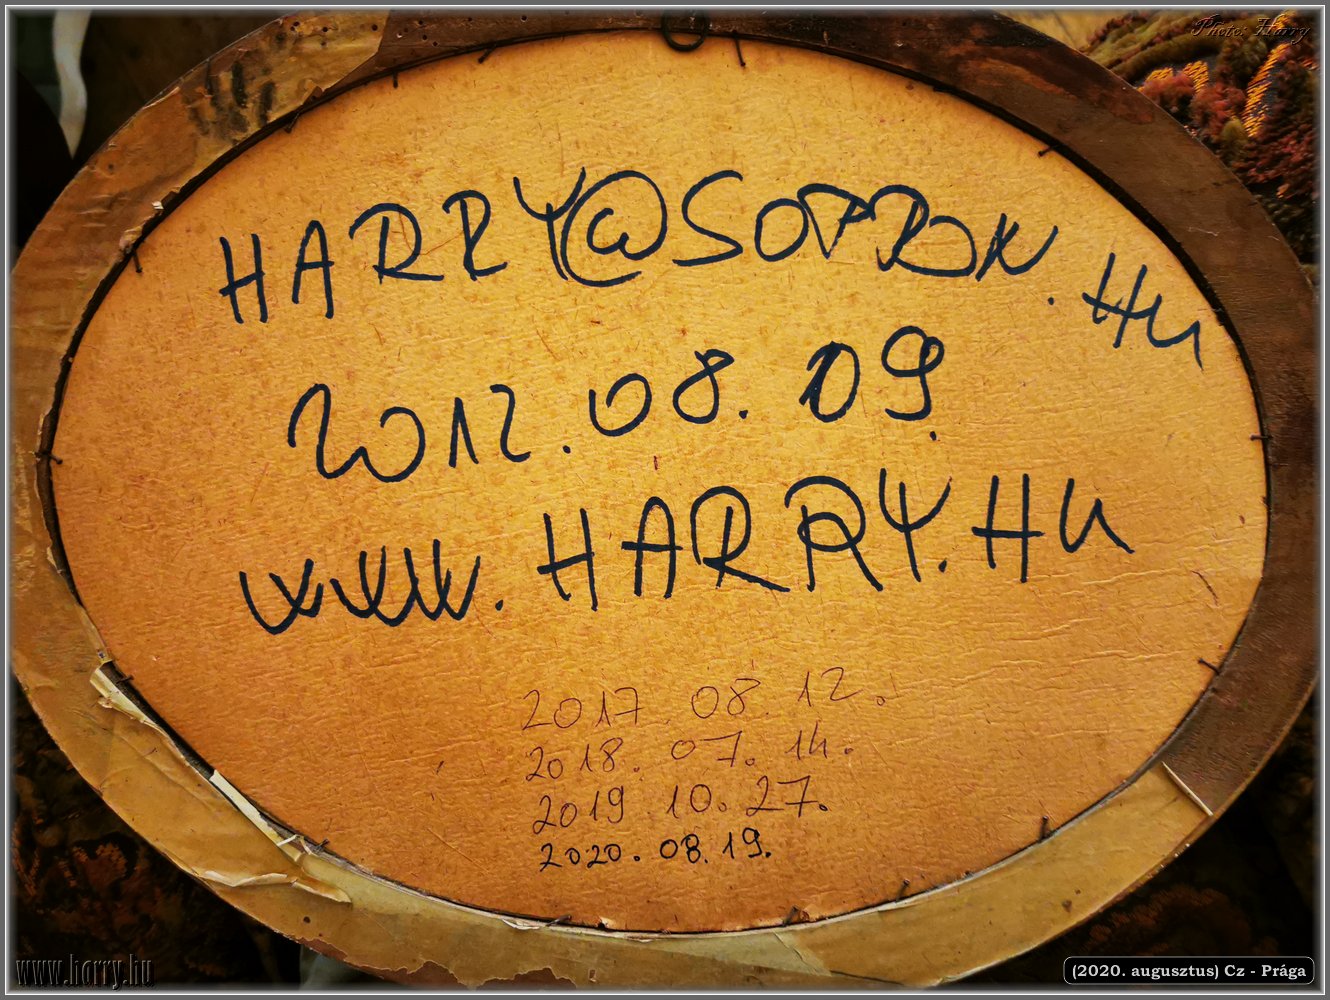 Photo: Harry
HARRY@SOPRON.HU
2012.08.09.
www.HARRY.HU
2017.08.12.
2018.07.14.
2019.10.27.
2020.08.19.
www.harry.hu
(2020. augusztus) Cz - Prága